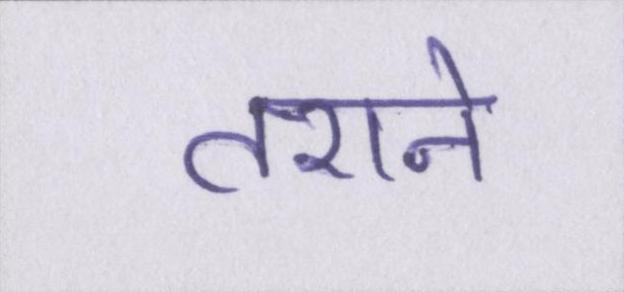 तराने